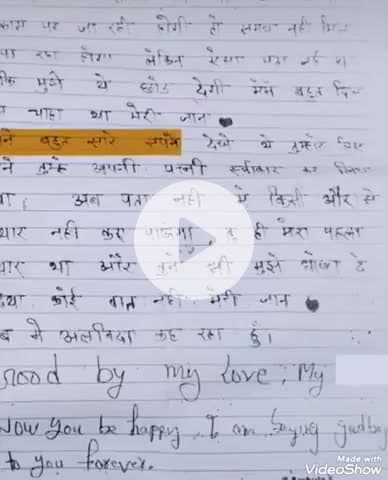 काम पर जा रही होगी तो समय नहीं मिल
पा रहा होगा लेकिन ऐसा पता नहीं था
मुझे ये छोड़ देगी मैंने बहुत दिल
चाहा था मेरी जान
बहुत सारे सपने देखे थे तुम्हारे लिए
तुम्हे अपनी पत्नी स्वीकार कर लिया
था। अब पता नहीं मैं किसी और से
प्यार नहीं कर पाऊंगा, तू ही मेरा पहला
प्यार था और तुने भी मुझे धोखा दे
दिया कोई बात नहीं मेरी जान
अब मैं अलविदा कह रहा हूँ।
Good by my love, My
Now you be happy, I am saying goodby
to you forever.
Made with
VideoShow